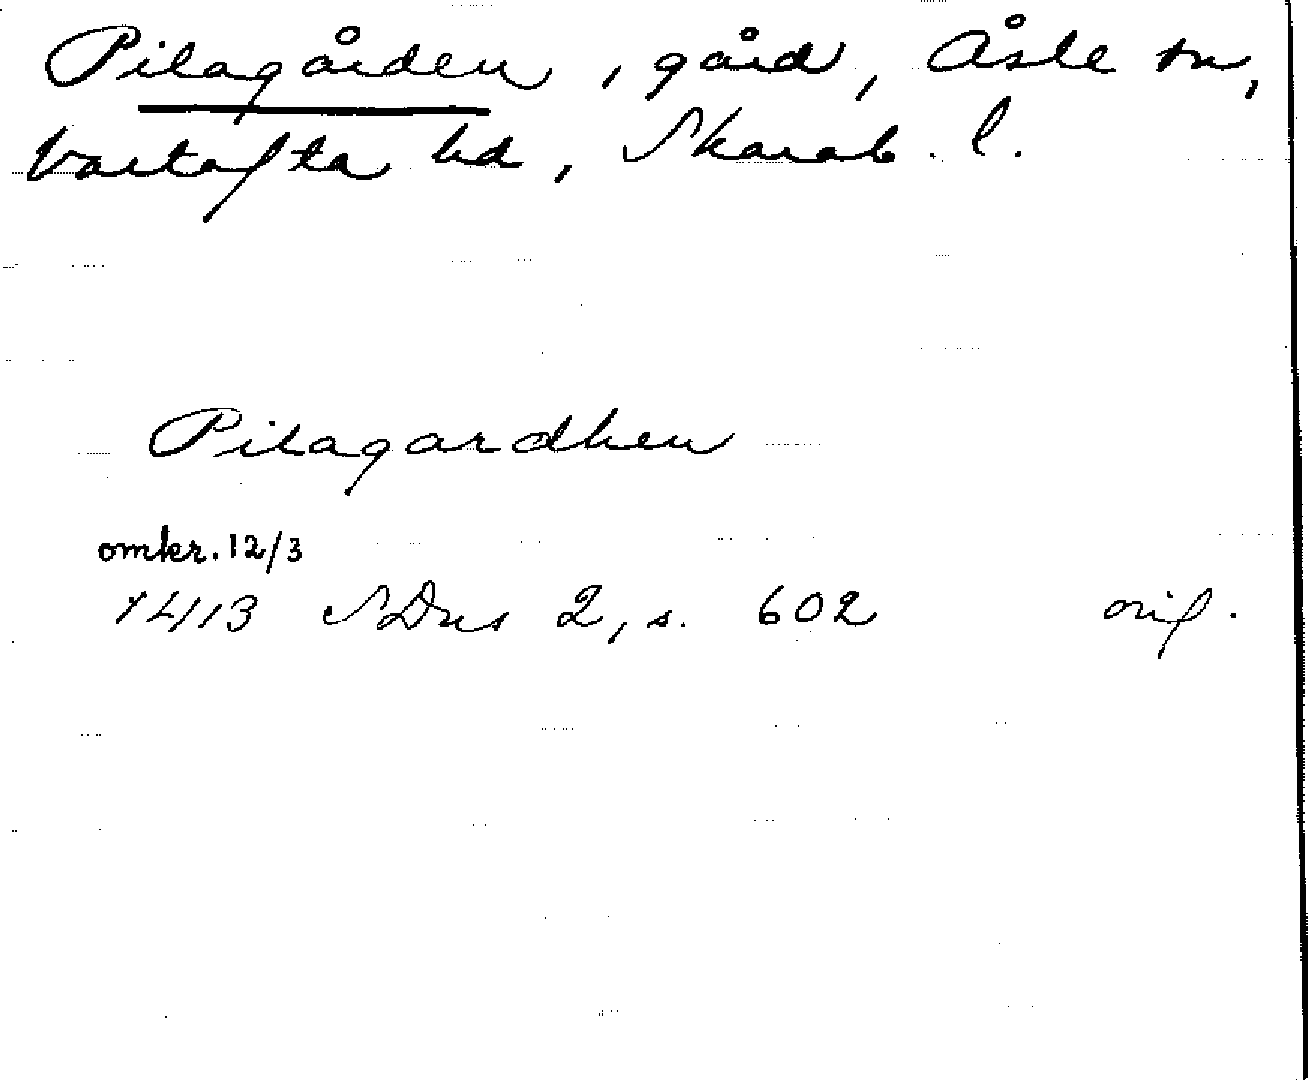 Pilagården, gård, Åsle sn,
Vartofta hd, Skarab. l.
Pilagardhen
omkr. 12/3
1413 SDns 2, s. 602 orig.